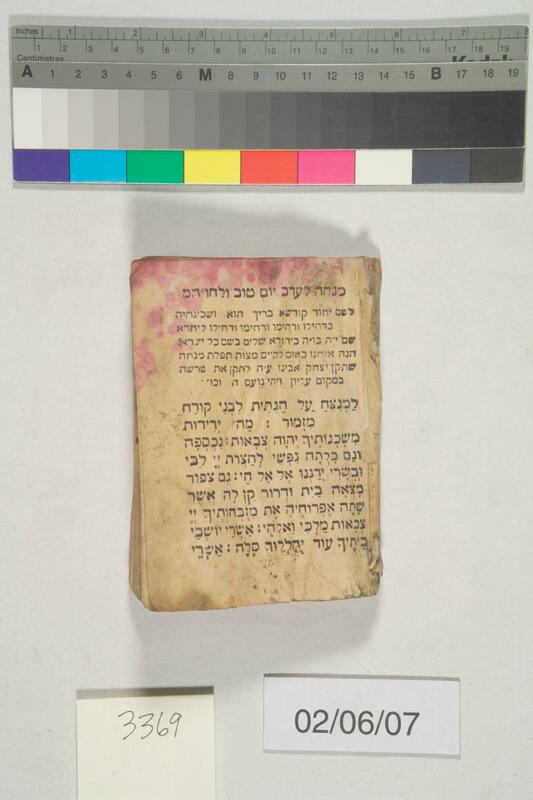 Inches 1 2 3 4 5 6 7 8
1 2 3 4 5 6 7 8 9 10 11 12 13 14 15 16 17 18 19
Centimetres Kodak
A 1 2 3 4 5 6 M 8 9 10 11 12 13 14 15 B 17 18 19
מנחה לערב יום טוב ולחו״המ
לשם יחוד קודשא בריך הוא ושכינתיה
בדחילו ורחימו ורחימו ודחילו ליחדא
שם י״ה בו״ה ביחודא שלים בשם כל ישראל
הנה אנחנו באים לקיים מצות תפלת מנחה
שתקן יצחק אבינו ע״ה לתקן את שרשה
במקום עליון ויהי נועם ה׳ וכו׳
לַמְנַצֵּחַ עַל הַגִּתִּית לִבְנֵי קֹורַח
מִזְמוֹר : מַה יְדִידוֹת
מִשְׁכְּנוֹתֶיךָ יְהוָה צְבָאוֹת : נִכְסְפָה
וְגַם כָּלְתָה נַפְשִׁי לְחַצְרוֹת יְיָ לִבִּי
וּבְשָׂרִי יְרַנְּנוּ אֶל אֵל חָי : גַּם צִפּוֹר
מָצְאָה בַיִת וּדְרוֹר קֵן לָהּ אֲשֶׁר
שָׁתָה אֶפְרוֹחֶיהָ אֶת מִזְבְּחוֹתֶיךָ יְיָ
צְבָאוֹת מַלְכִּי וֵאלֹהָי : אַשְׁרֵי יוֹשְׁבֵי
בֵיתֶךָ עוֹד יְהַלְלוּךָ סֶּלָה : אַשְׁרֵי
3369
02/06/07